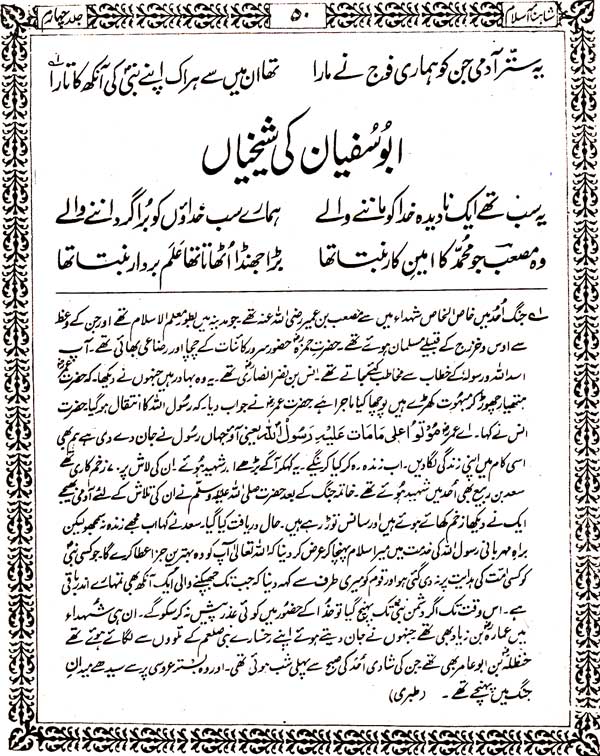 شاہنامہ اسلام
۵۰
جلد چہارم
یہ ستر آدمی جن کو ہماری فوج نے مارا تھا ان میں سے ہر اک اپنے نبیؐ کی آنکھ کا تارا لہ
ابوسُفیان کی شیخیاں
یہ سب تھے ایک نادیدہ خدا کو ماننے والے ہمارے سب خداؤں کو بُرا گرداننے والے
وہ مصعبؓ جو محمدؐ کا امینِ کار بنتا تھا بڑا جھنڈا اُٹھاتا تھا عَلَم بردار بنتا تھا
لہ جنگِ اُحد میں خاص الخاص شہداء میں سے مصعب بن عمیر رضی اللہ عنہ تھے جو مدینہ میں بطور معلم الاسلام تھے اور جن کے وعظ
سے اوس و خزرج کے قبیلے مسلمان ہوئے تھے۔ حضرت حمزہؓ حضور سرورِ کائنات کے چچا اور رضاعی بھائی تھے۔ آپ
اسد اللہ و رسولہٗ کے خطاب سے مخاطب کئے جاتے تھے۔ انس بن نضر انصاریؓ تھے۔ یہ وہ بہادر ہیں جنہوں نے دیکھا۔ کہ حضرت عمرؓ
ہتھیار چھوڑ کر مبہوت کھڑے ہیں پوچھا کیا ماجرا ہے حضرت عمرؓ نے جواب دیا۔ کہ رسول اللہ کا انتقال ہوگیا حضرت
انس نے کہا۔ اے عمرؓ مُوْتُوْا عَلٰی مَامَاتَ عَلَیْہِ رَسُوْلُ اللّٰہ یعنی آؤ جہاں رسول نے جان دے دی ہے ہم بھی
اسی کام میں اپنی زندگی لگا دیں۔ اب زندہ رہ کر کیا کریں گے۔ یہ کہہ کر آگے بڑھے اور شہید ہوئے۔ اِن کی لاش پر ۷۰ زخم کاری تھے
سعد بن ربیع بھی اُحد میں شہید ہوئے تھے۔ خاتمہ جنگ کے بعد حضرت صلی اللہ علیہ وسلم نے ان کی تلاش کے لئے آدمی بھیجے
ایک نے دیکھا زخم کھائے ہوئے ہیں اور سانس توڑ رہے ہیں۔ حال دریافت کیا گیا۔ سعد نے کہا اب مجھے زندہ نہ سمجھو لیکن
براہ مہربانی رسول اللہ کی خدمت میں میرا سلام پہنچا کر عرض کر دینا کہ اللہ تعالیٰ آپ کو وہ بہترین جزا عطا کرے گا۔ جو کسی نبیؐ
کو کسی امت کی ہدایت پر نہ دی گئی ہو اور قوم کو میری طرف سے کہہ دینا کہ جب تک جھپکنے والی ایک آنکھ بھی تمہارے اندر باقی
ہے۔ اس وقت تک اگر دشمن نبیؐ تک پہنچ گیا تو خدا کے حضور میں کوئی عذر پیش نہ کر سکو گے۔ ان ہی شہداء
میں عمارہؓ بن زیاد بھی تھے جنہوں نے جان دیتے ہوئے اپنے رخسارے نبی صلعم کے تلووں سے لگائے ہوئے تھے
حنظلہؓ بن ابو عامر بھی تھے جن کی شادی اُحد کی صبح سے پہلی شب ہوئی تھی۔ اور وہ بسترِ عروسی پر سے سیدھے میدانِ
جنگ میں پہنچے تھے۔ (طبری)